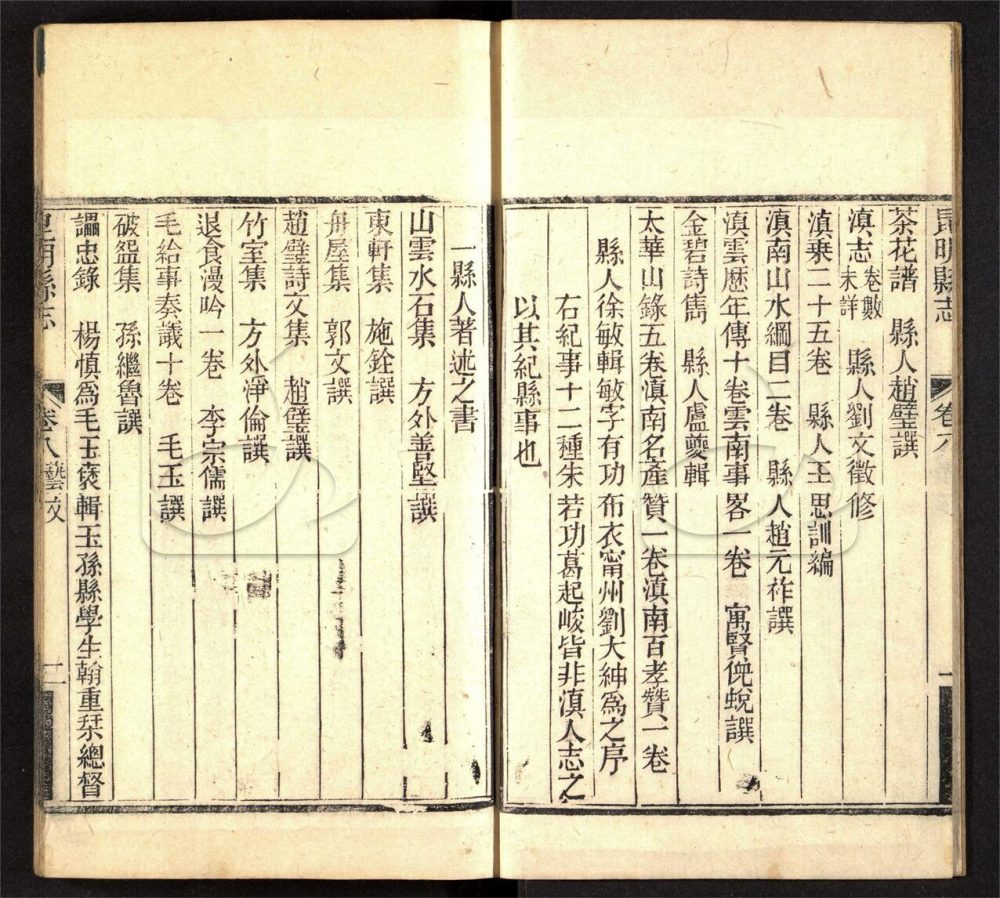 昆明縣志 卷八 一
茶花譜 縣人趙璧譔
滇志卷數未詳 縣人劉文徵修
滇乘二十五卷 縣人王思訓編
滇南山水綱目二卷 縣人趙元祚譔
滇雲歷年傳十卷雲南事畧一卷 寓賢倪蛻譔
金碧詩雋 縣人盧夔輯
太華山錄五卷滇南名產贊一卷滇南百孝贊一卷
縣人徐敏輯敏字有功布衣甯州劉大紳爲之序
右紀事十二種朱若功葛起峻皆非滇人志之
以其紀縣事也
一縣人著述之書
山雲水石集 方外善堅譔
東軒集 施銓譔
舟屋集 郭文譔
趙璧詩文集 趙璧譔
竹室集 方外淨倫譔
退食漫吟一卷 李宗儒譔
毛給事奏議十卷 毛玉譔
破盌集 孫繼魯譔
讄忠錄 楊慎爲毛玉裒輯玉孫縣學生翰重栞總督
昆明縣志 卷八藝文 二